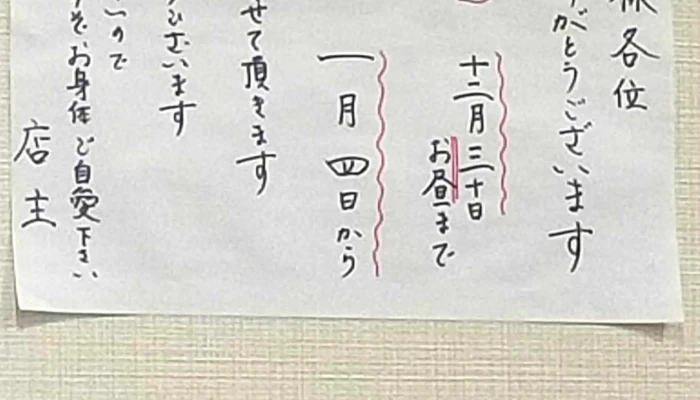 様各位
がとうございます
十二月三十日
お昼まで
一月四日から
せて頂きます
ございます
ので
お身体ご自愛下さい
店主